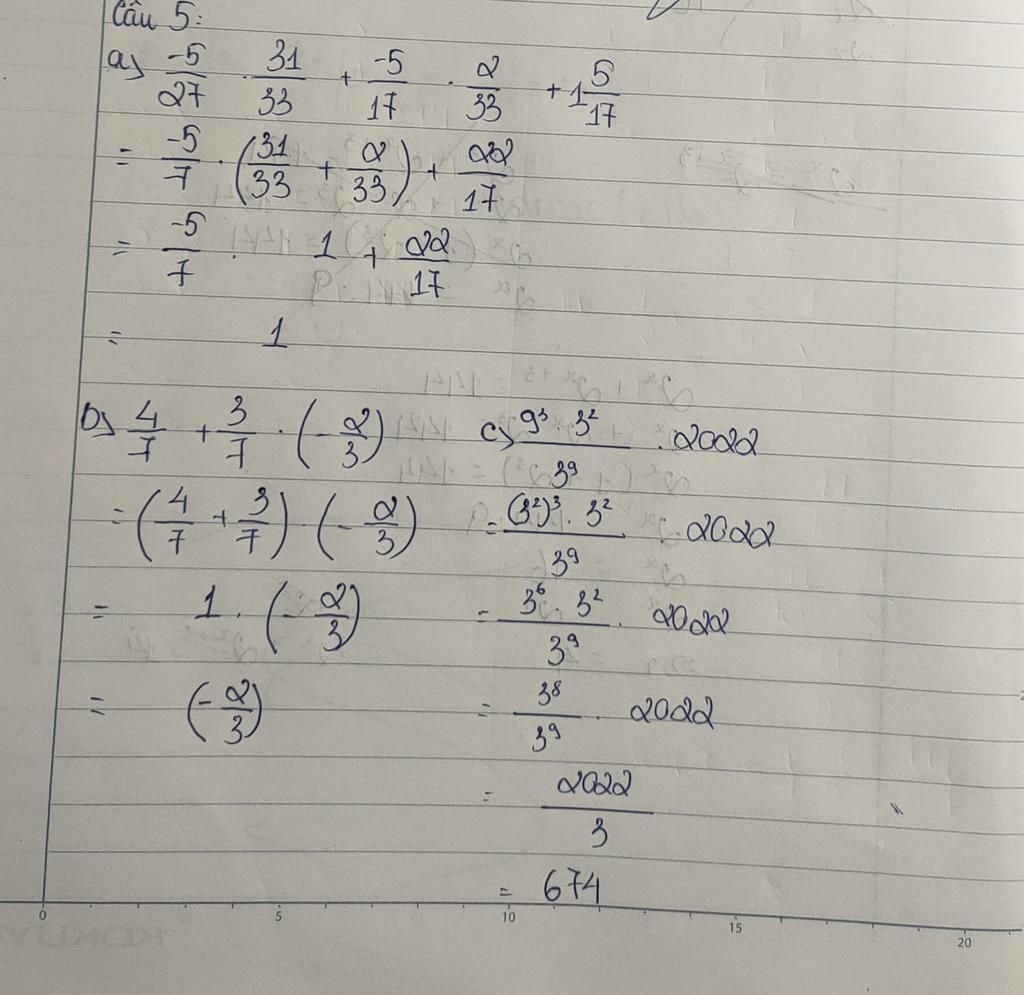 Câu 5:
a) -5/27 · 31/33 + -5/17 · 2/33 + 1 5/17
= -5/7 · (31/33 + 2/33) + 22/17
= -5/7 · 1 + 22/17
= 1
b) 4/7 + 3/7 · (-2/3)
= (4/7 + 3/7) · (-2/3)
= 1 · (-2/3)
= (-2/3)
c) 9³ · 3²/3⁹ · 2022
= (3²)³ · 3²/3⁹ · 2022
= 3⁶ · 3²/3⁹ · 2022
= 3⁸/3⁹ · 2022
= 2022/3
= 674
0 5 10 15 20